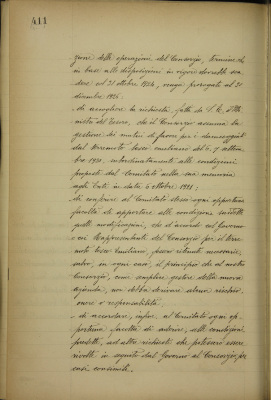 411
zioni delle operazioni del Consorzio, termine che
in base alle disposizioni in vigore dovrebbe sca
dere col 31 ottobre 1924, venga prorogato al 31
dicembre 1926.
- di accogliere la richiesta, fatta da S. E. il Mi
nistro del Tesoro, che il Consorzio assuma la
gestione dei mutui di favore per i danneggiati
dal terremoto
subordinatamente alle condizioni
proposte dal Comitato nella sua memoria
agli Enti in data 6 ottobre 1921;
- di conferire al Comitato stesso ogni opportuna
facoltà di apportare alle condizioni suddette
quelle modificazioni, che d'accordo col Governo
e coi Rappresentanti del Consorzio per il terre
moto fossero ritenute necessarie,
salvo, in ogni caso, il principio che al nostro
Consorzio, come semplice gestore della nuova
Azienda, non debba derivare alcun rischio,
onere o responsabilità.
- di accordare, infine, al Comitato ogni op-
portuna facoltà di aderire, alle condizioni
predette, ad altre richieste che potessero essere
rivolte in seguito dal Governo al Consorzio per
casi consimili.